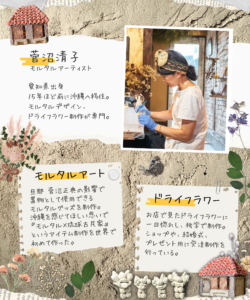 菅沼清子
モルタルアーティスト
愛知県出身
15年ほど前に沖縄へ移住。
モルタルデザイン、
ドライフラワー制作が専門。
モルタルアート
旦那 菅沼正泰の影響で
置物として使用できる
モルタルグッズを制作。
沖縄を感じてほしい思いで
『モルタル×琉球古民家』
というアイテム制作を世界で
初めて作った。
ドライフラワー
お店で見たドライフラワーに
一目惚れし、独学で制作。
ショップや、結婚式、
プレゼント用に受注制作を
行っている。